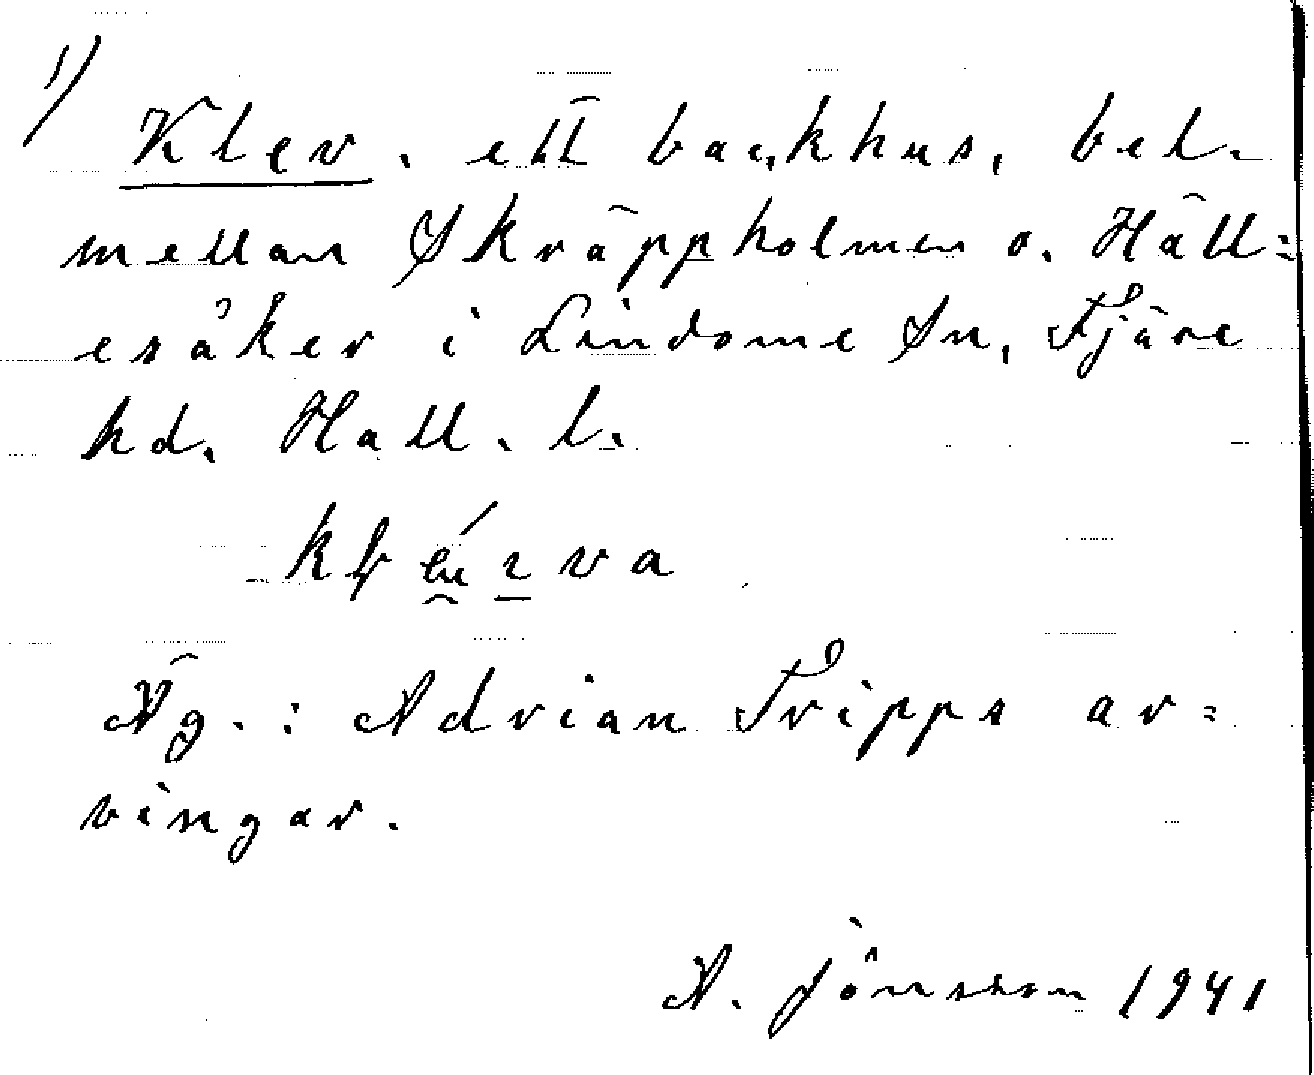 1)
Klev. ett backhus, bel.
mellan Skräppholmen o. Häll=
esåker i Lindome Sn, Fjäre
hd. Hall. l.
Äg.: Adrian Tripps ar=
vingar.
A. Jönsson 1941